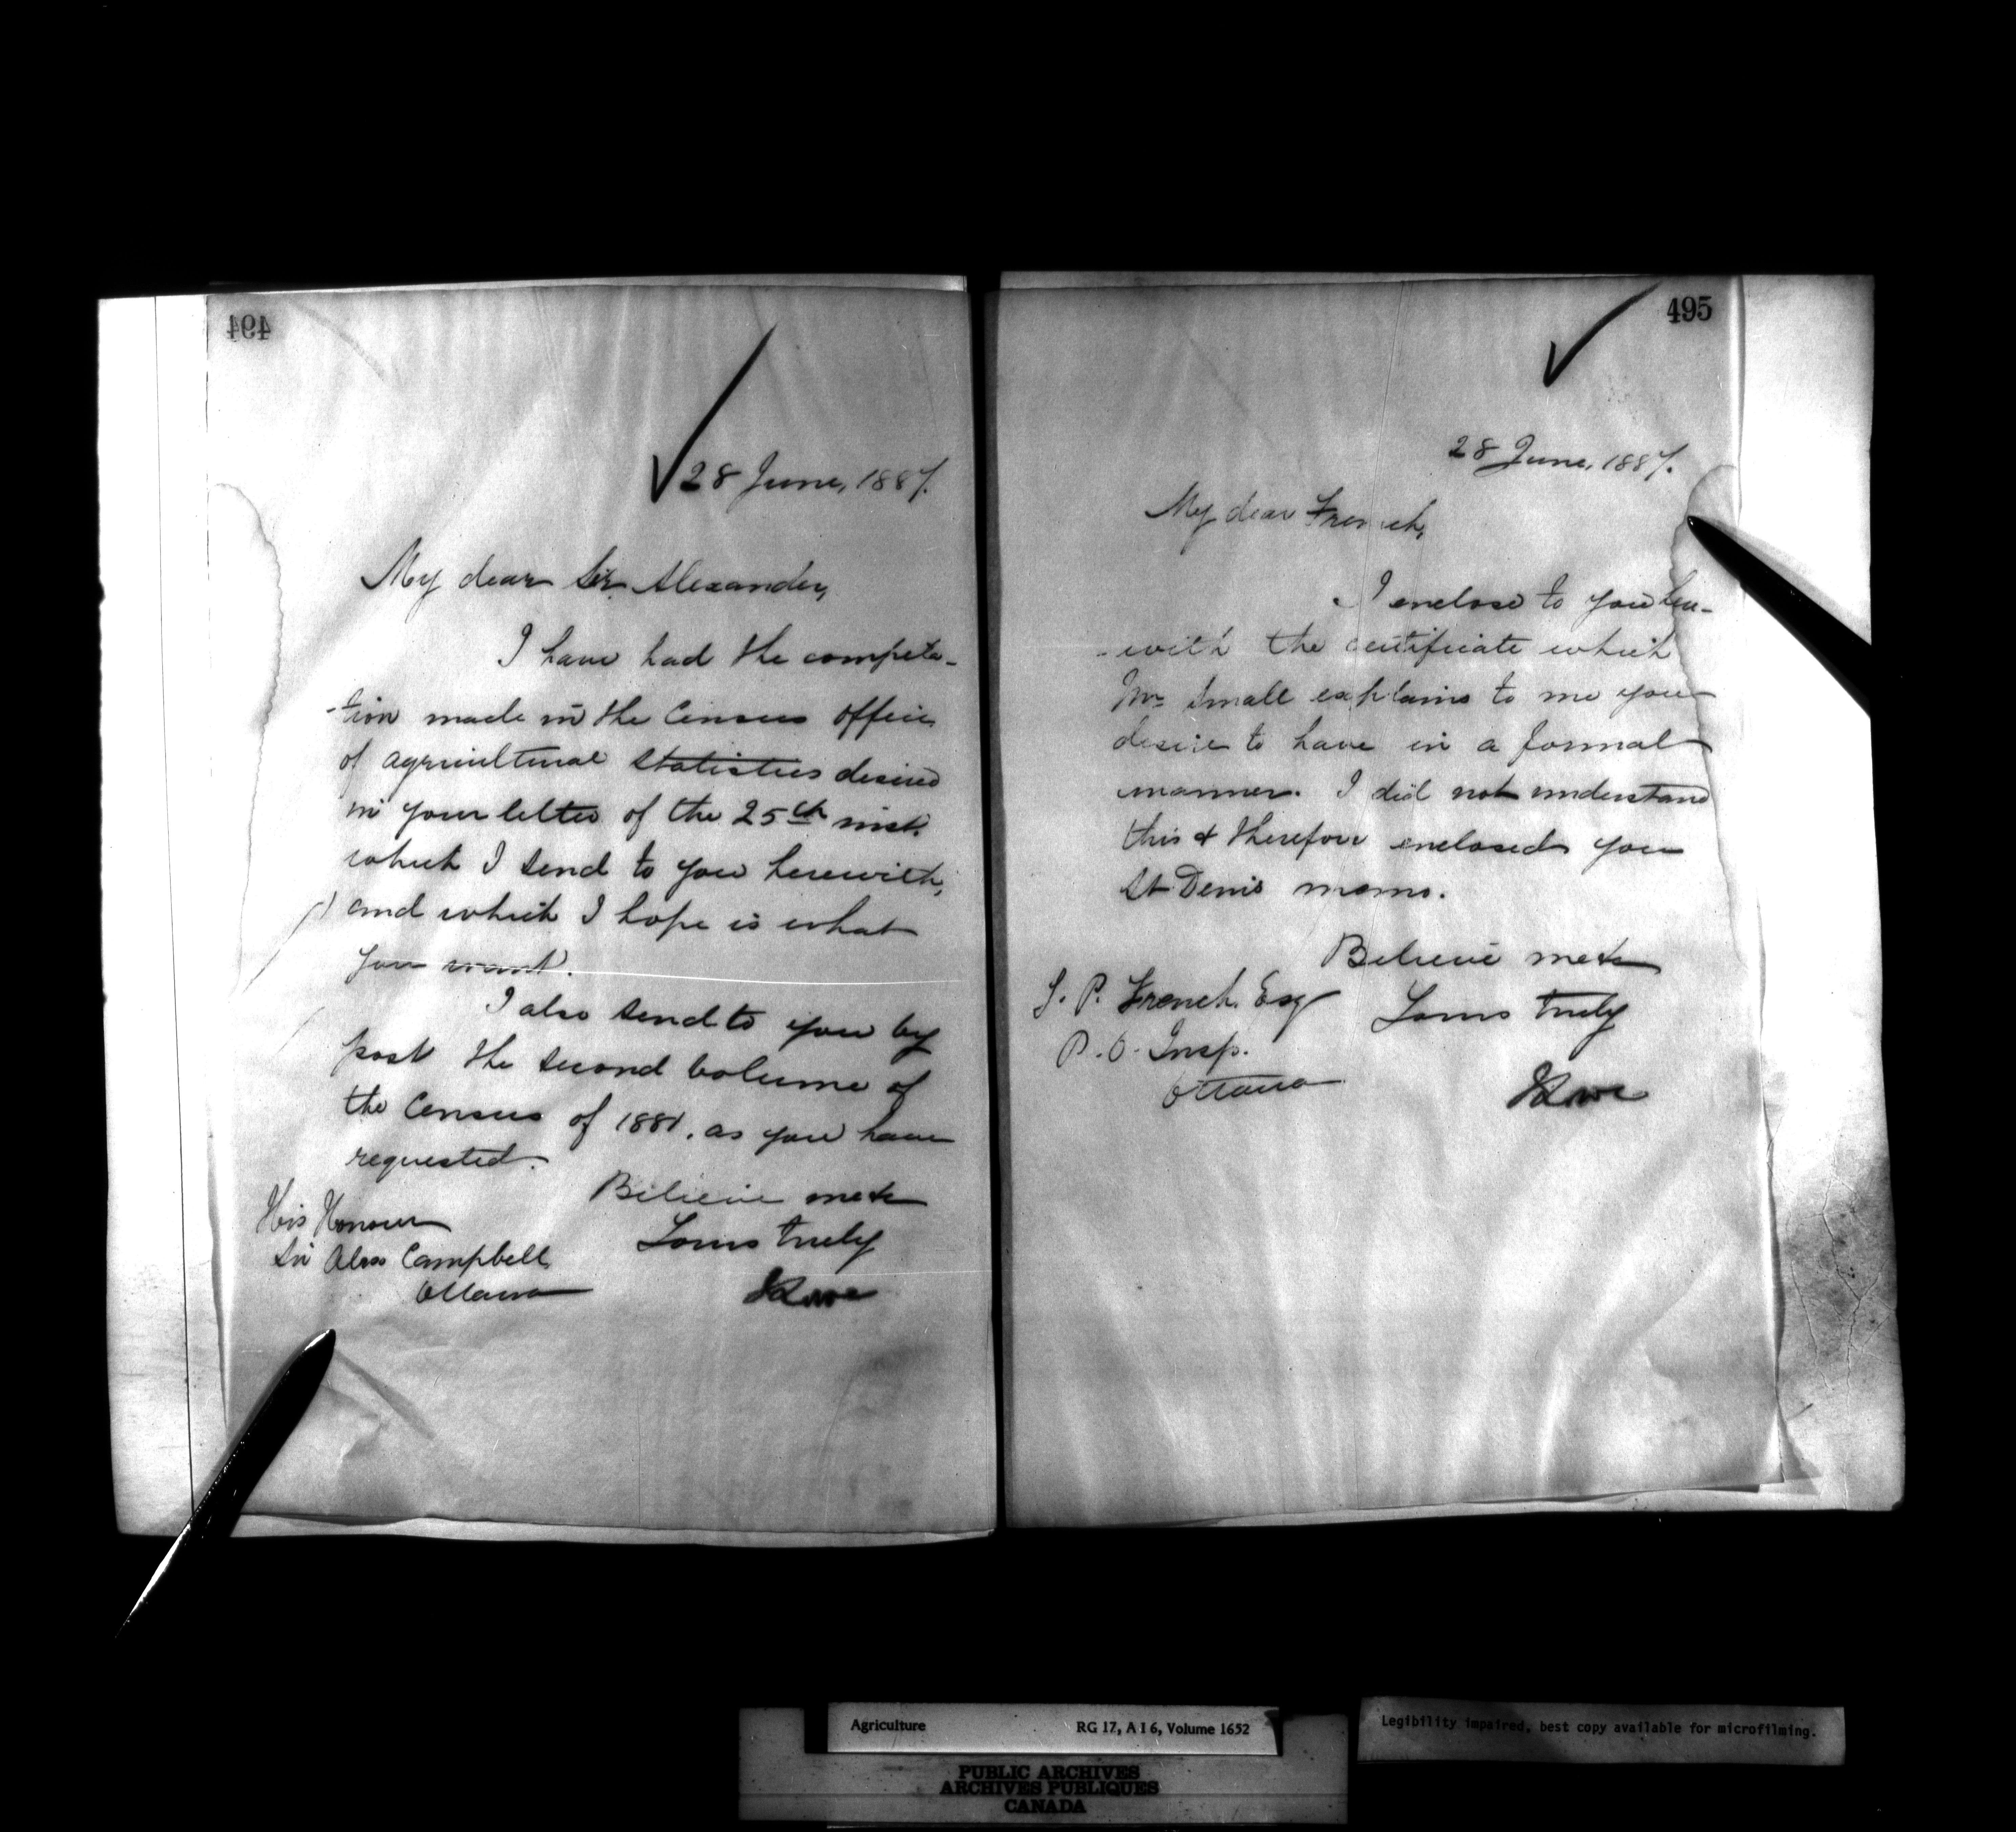 494
28 June, 1887.
My dear Sir Alexander,
I have had the computa-
-tion made in the Census Office
of agricultural statistics desired
in your letter of the 25th inst.
which I send to you herewith,
and which I hope is what
you want.
I also send to you by
post the second volume of
the Census of 1881, as you have
requested.
Believe me to be
Yours truly
His Honour
Sir Alex Campbell
Ottawa
495
28 June, 1887.
My dear French,
I enclose to you here-
-with the certificate which
Mr Small explains to me you
desire to have in a formal
manner. I did not understand
this & therefore enclosed you
St Denis memo.
Believe me to be
Yours truly
P. French Esq
P.O. Insp.
Ottawa
Agriculture RG 17, A I 6, Volume 1652
Legibility impaired, best copy available for microfilming.
PUBLIC ARCHIVES
ARCHIVES PUBLIQUES
CANADA